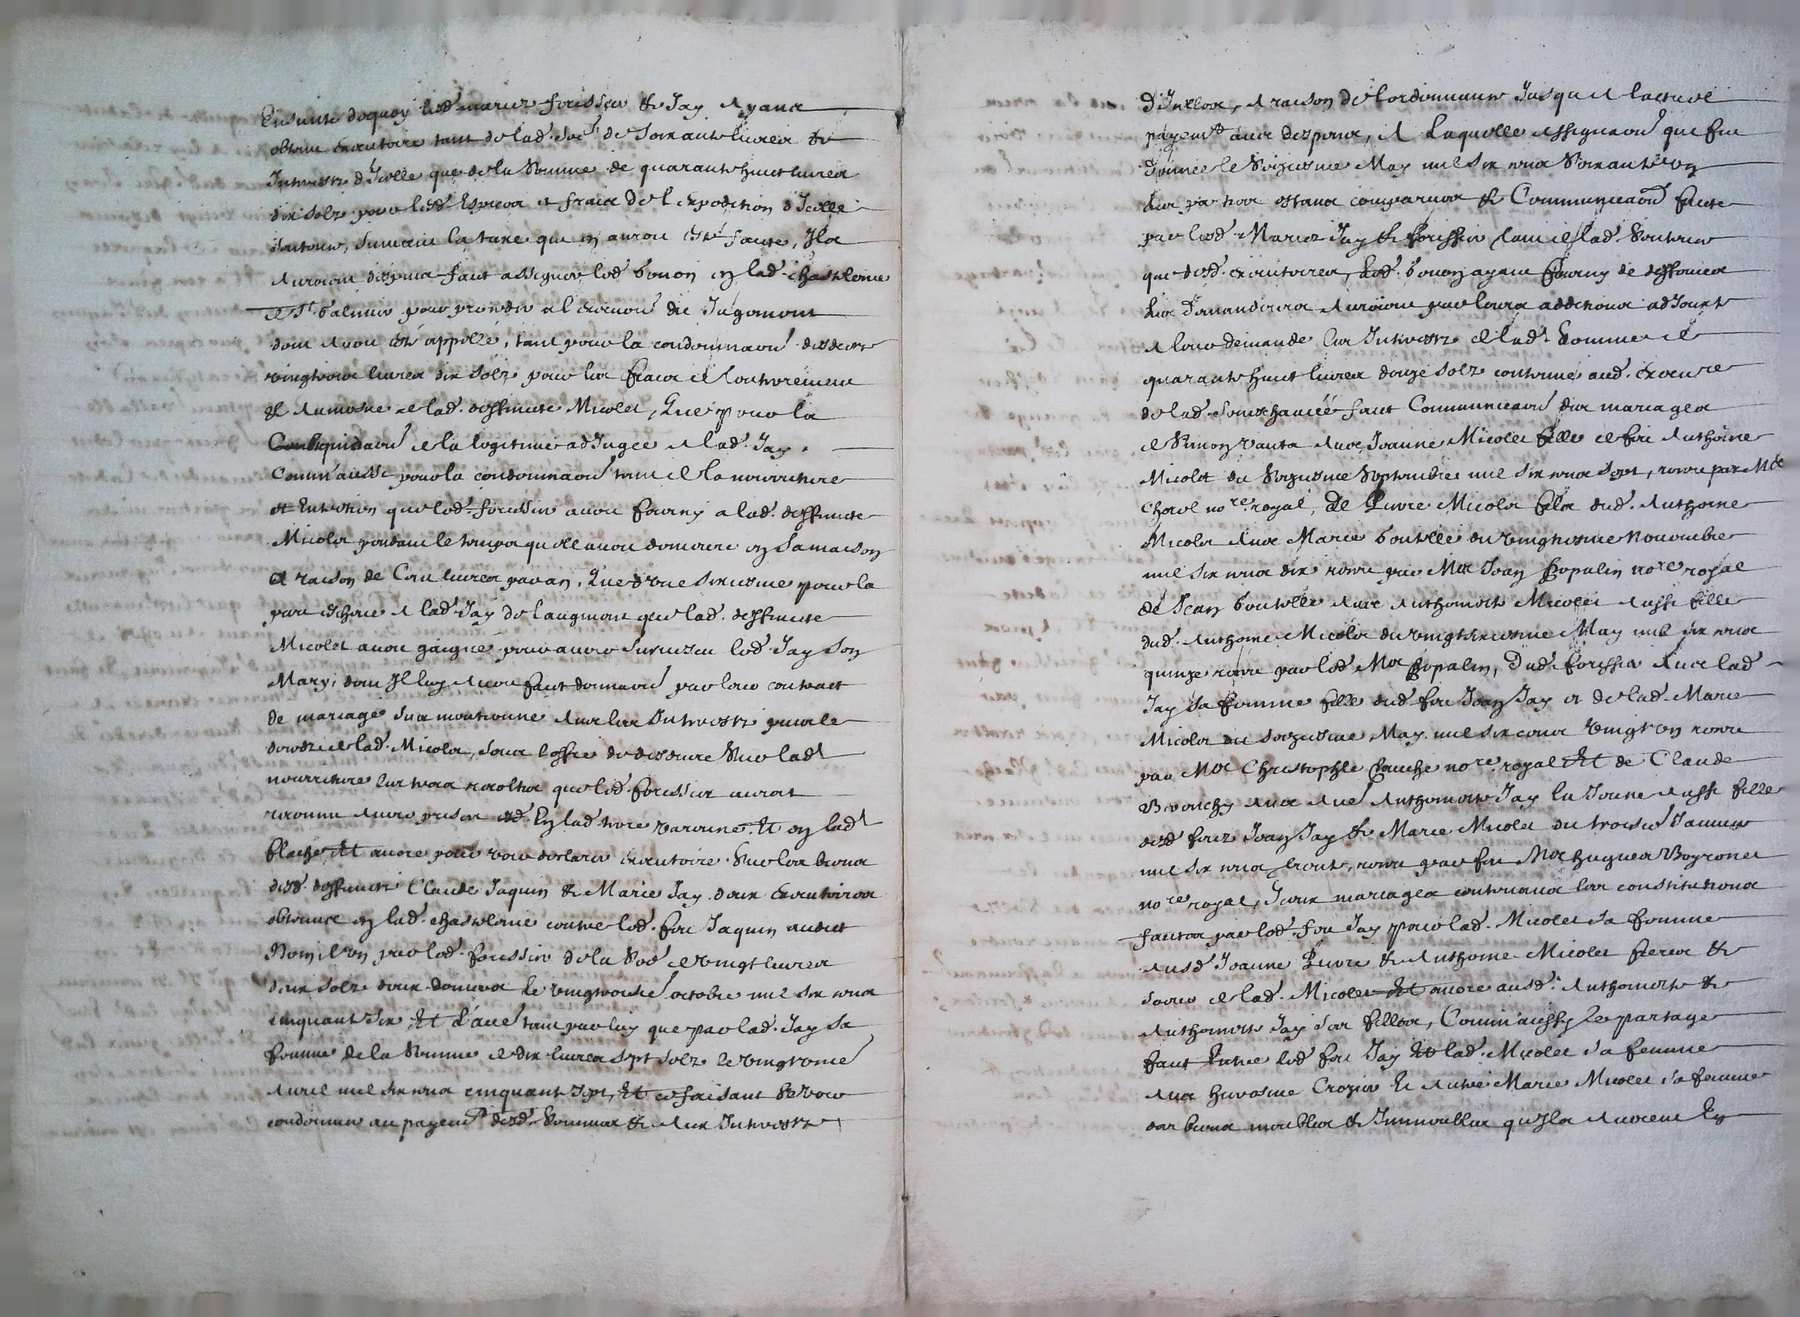 Ensuite dequoy lesd. mariez forissier & Jay Ayant
obtenu executoire tant de lad. so.e de soixante livres &
Interestz d'Icelle que de la somme de quarante huict livres
dix solz pour lesd. Espices et fraix de l'expedition d'Icelle
suivant la taxe que en auroit esté faicte, Ilz
Auroient despuis faict assigner led. bonon en lad. chastelenie
pour prendre del execuon du Jugement
dont Avoit esté appellé, tant pour la condemnaon desdeux
vingt livres dix solz pour les fraix de
& Aumosne de lad. deffuncte Micolet, Que pour la
liquidaon de la legitime adjugée A lad. Jay,
Comm'aussi pour la condemnaon tant de la nourriture
et Entretien que led. forissier avoit fourny a lad. deffuncte
Micolet pendant le temps qu'elle avoit demeuré en sa maison
A raison de Cent livres par an, Que d'une sixiesme pour la
part escheue A lad. Jay de l'augment que lad. deffuncte
Micolet avoit gaigné pour avoir survescu led. Jay son
Mary, dont Il luy Avoit faict donnaon par leur contract
de mariage, avec les Interestz pour le
deceds de lad. Micolet, soubz l'offre de desduire sur lad.
nourriture les recoltes que led. forissier auroit
recogneu Avoir prises En lad. terre varenne Et en lad.
Et encore pour veoir declarer executoire sur les biens
desd. deffunctz Claude Jaquin & Marie Jay deux Executoires
obtenus en lad. chastelenie contre led. feu Jaquin audict
Nom, l'un par led. forissier de la so.e de vingt livres
deux solz deux deniers le vingtroisie. octobre mil six centz
cinquante six, Et l'autre tant par luy que par lad. Jay sa
femme de la somme de dix livres sept solz le vingtiesme
Avril mil six centz cinquante sept, Et ce faisant se veoir
condemner au payemt. desd. sommes & Aux Interestz
A raison de l'ordonnance Jusques A l'actuel
payemt. avec despens, A Laquelle assignaon que fut
donnée le seiziesme May mil six centz soixante un
Les parties estant comparues & Communicaon faicte
par lesd. Mariez Jay & forissier tant de lad. sentence
que desd. executoires, Led. bonon ayant fourny de deffences
Les Demandeurs Auroient par leurs additions adjousté
A leur demande Les Interestz de lad. somme de
quarante huict livres douze solz contenue aud. execure
de lad. seneschaucée, faict Communicaon des mariages
de Simon Avec Jeanne Micolet fille de feu Anthoine
Micolet du seiziesme septembre mil six centz sept, receu par Me
no.re royal, De Pierre Micolet filz dud. Anthoine
Micolet Avec Marie boutelle du vingtiesme Novembre
mil six centz dix receu par Me Jean Popalin no.re royal
de Jean boutelle Avec Anthoinette Micolet Aussi fille
dud. Anthoine Micolet du vingtsixiesme May mil six centz
quinze receu par led. Me Popalin, Dud. forissier Avec lad.
Jay sa femme fille dud. feu Jean Jay et de lad. Marie
Micolet du seiziesme May mil six centz vingt un receu
par Me Christophle no.re royal Et de Claude
Avec Anthoinette Jay la Jeune Aussi fille
desd. feuz Jean Jay & Marie Micolet du troisie. Janvier
mil six centz trente, receu par feu Me hugues Boyronet
no.re royal, Iceux mariages contenant les constitutions
faictes par led. feu Jay pour lad. Micolet sa femme
Ausd. Jeanne Pierre & Anthoine Micolet freres &
soeurs de lad. Micolet Et encore ausd. Anthoinette &
Anthoinette Jay ses filles, Comm'aussy Le partage
faict Entre led. feu Jay Et lad. Micolet sa femme
Avec hierosme Crozier Et Marie Micolet sa femme
des biens meubles & Immeubles qu'Ilz Avoient En